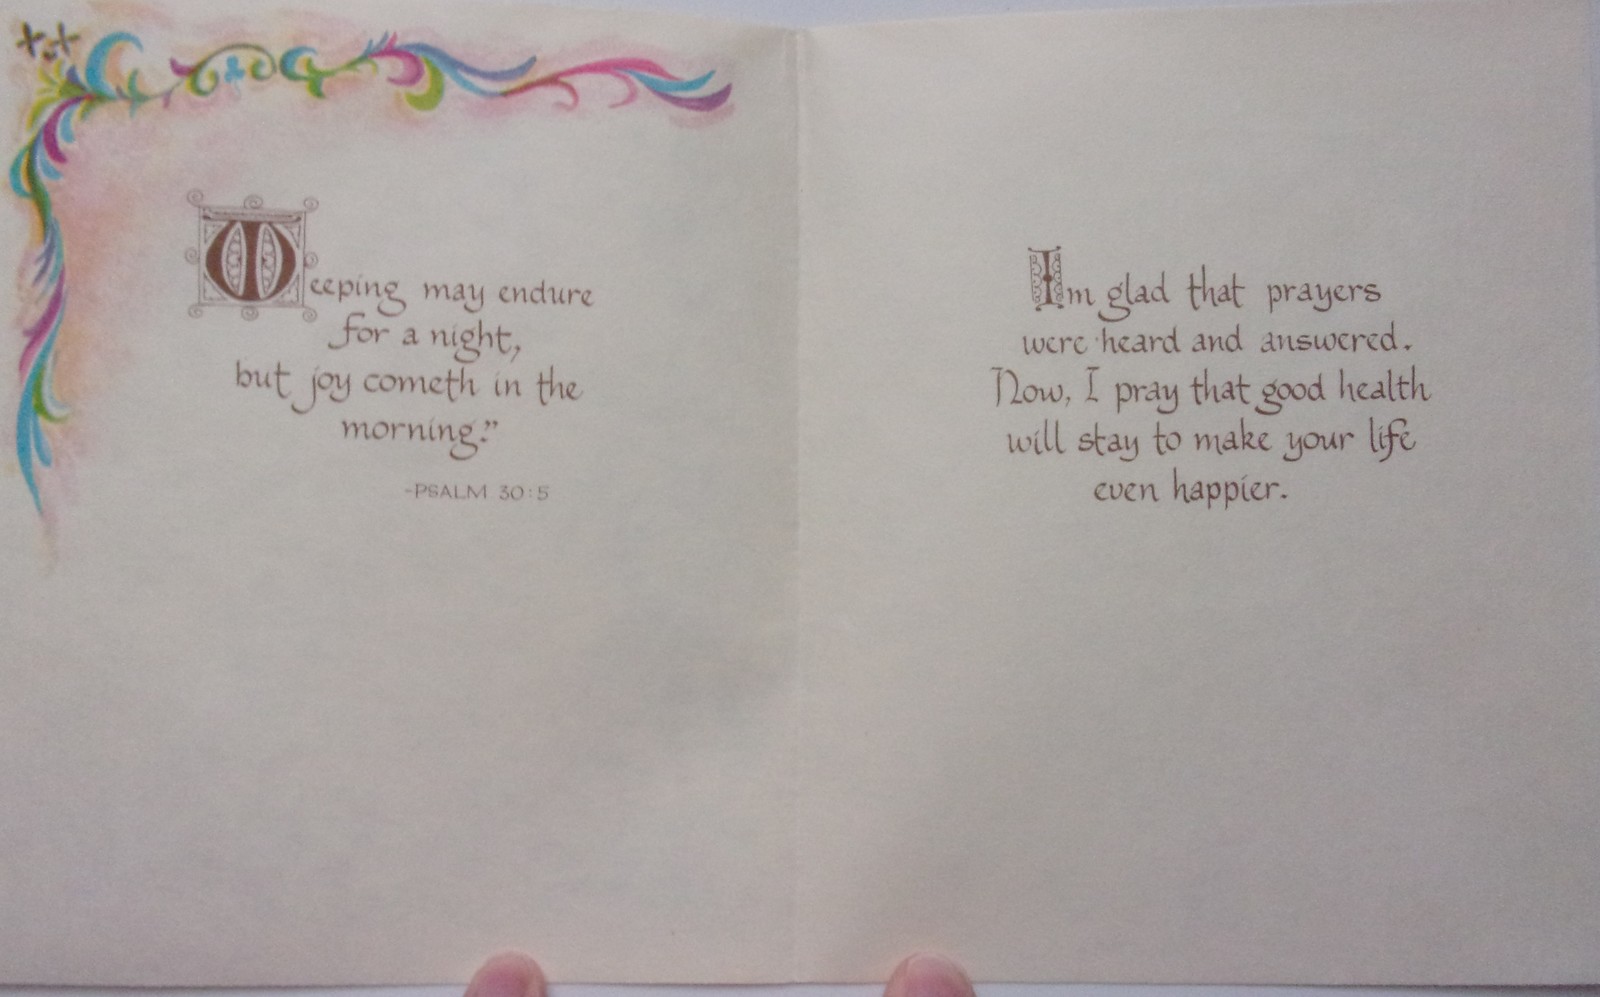 Weeping may endure
for a night,
but joy cometh in the
morning."
-PSALM 30:5
I'm glad that prayers
were heard and answered.
Now, I pray that good health
will stay to make your life
even happier.